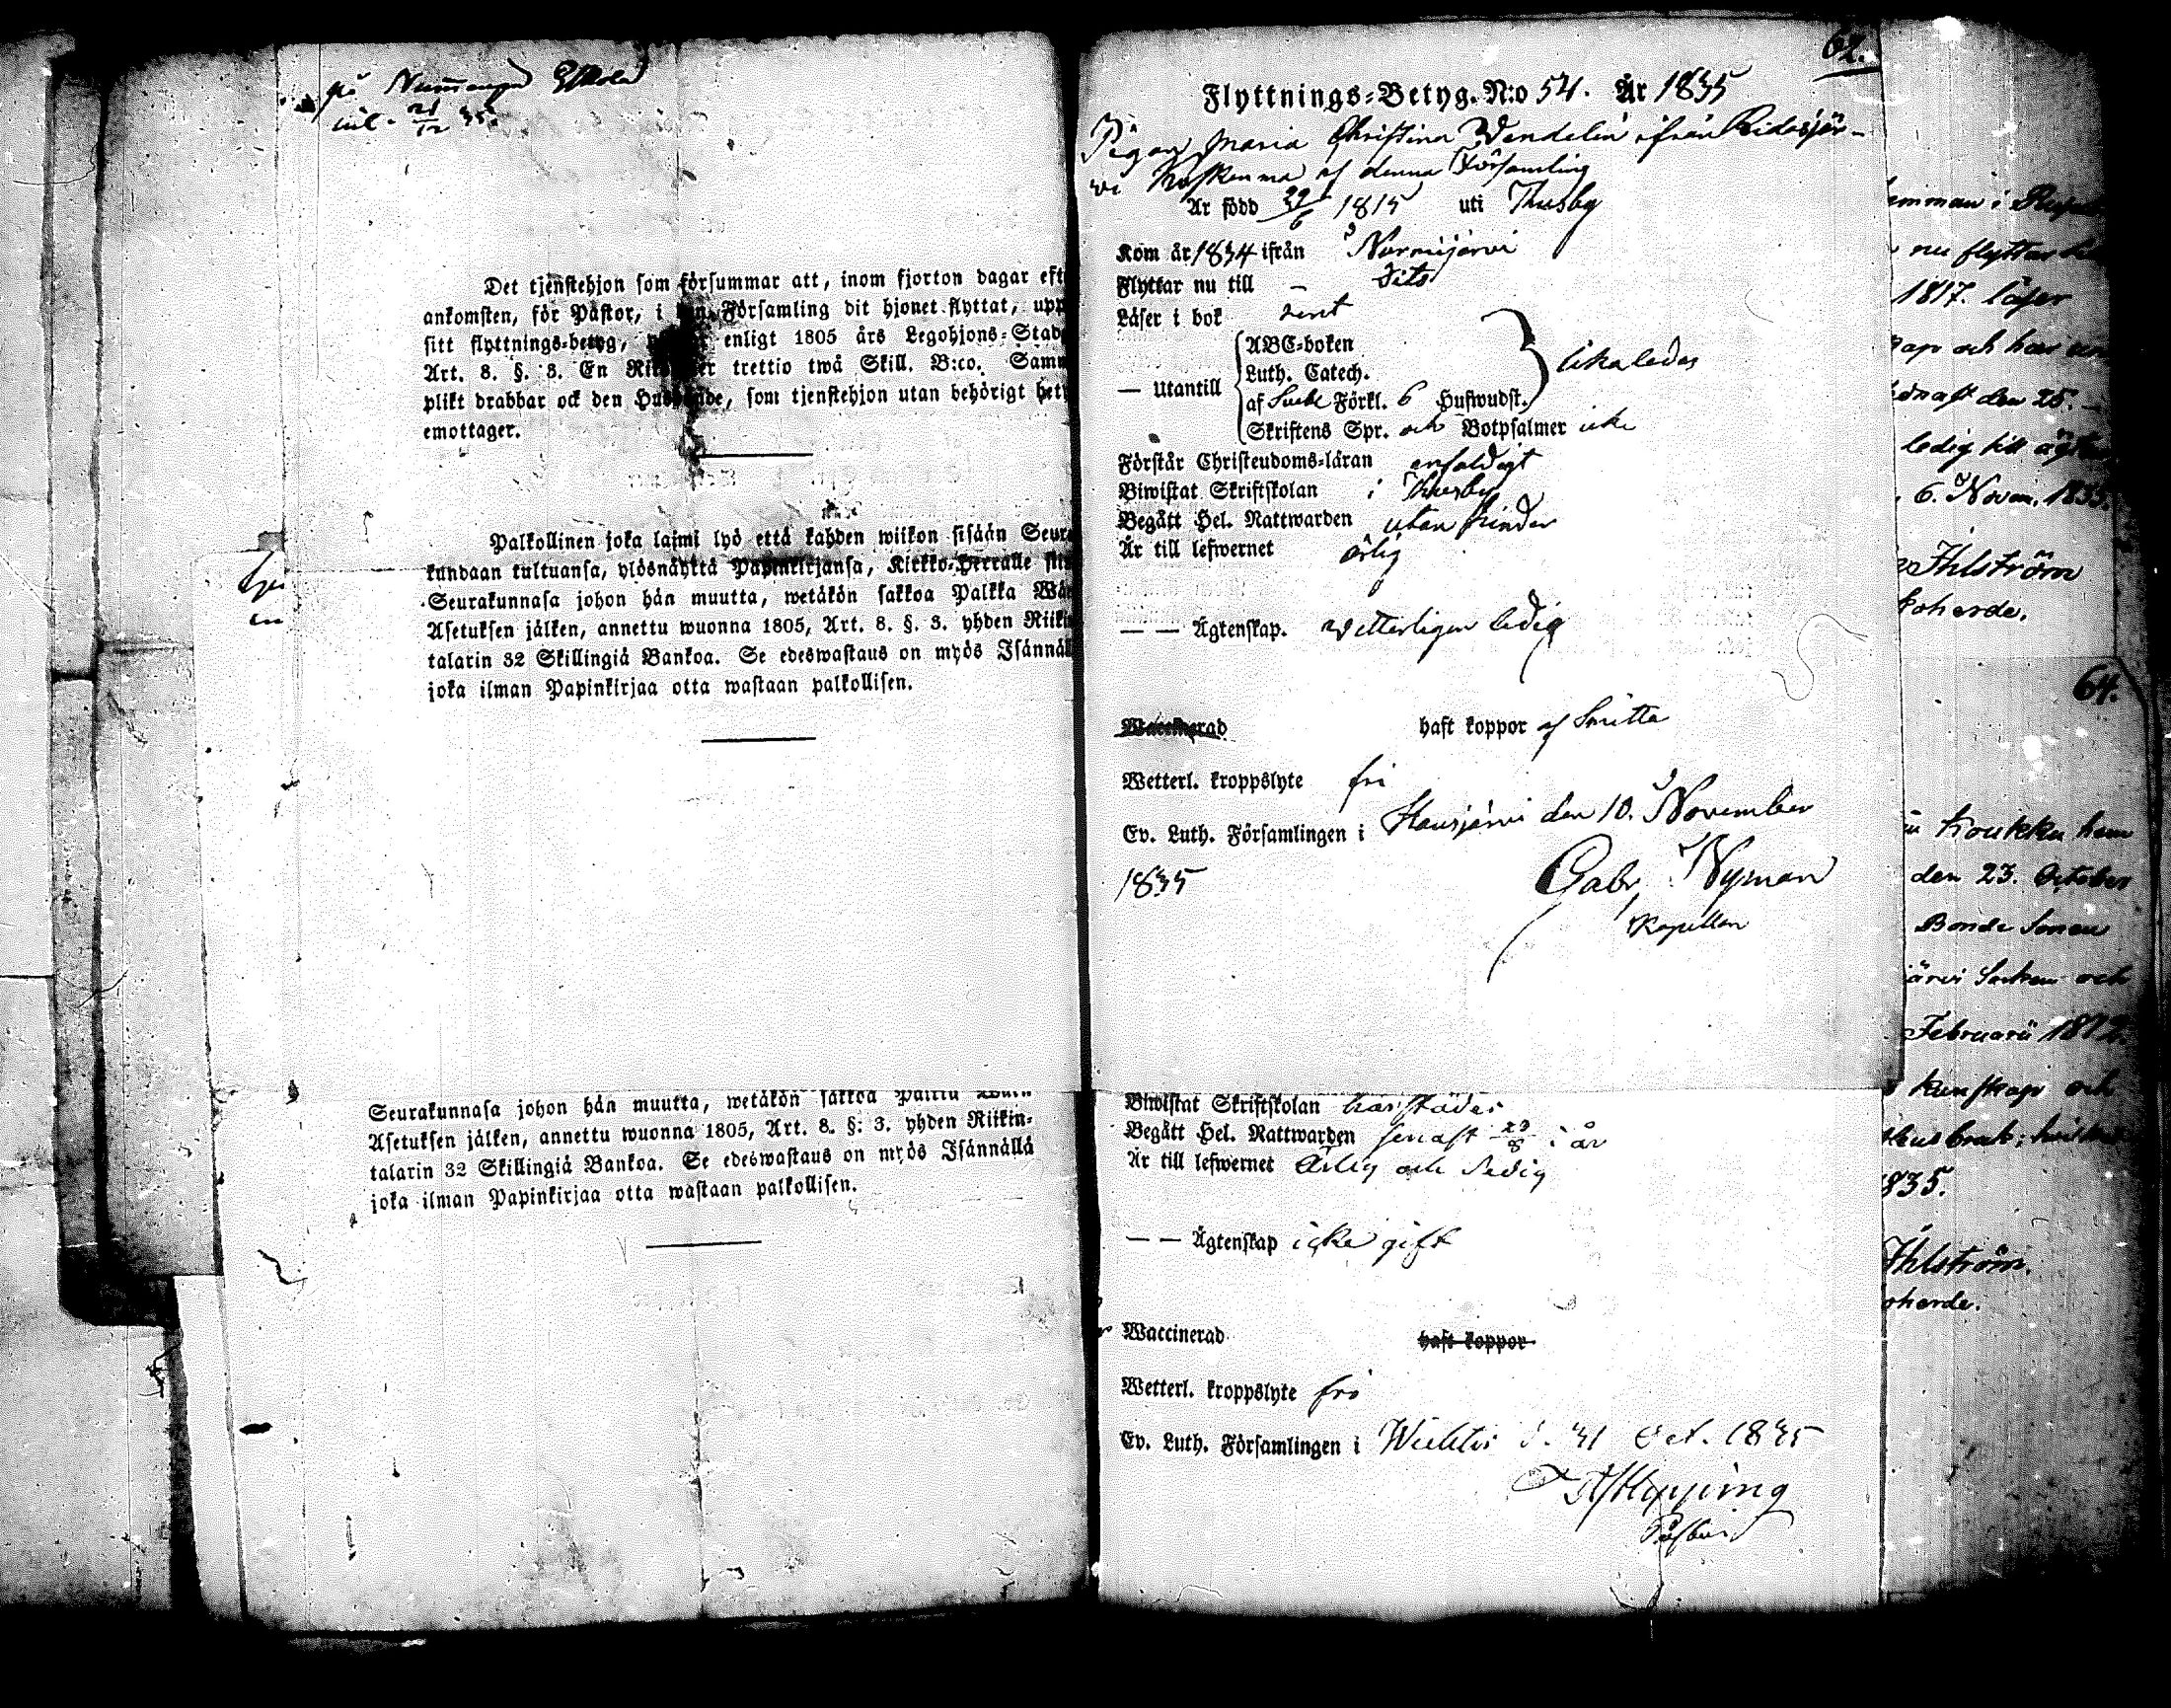 på Nummenpä Eskola
inl. 21/12 35.
Det tjenstehjon som försummar att, inom fjorton dagar eft
ankomsten, för Pastor, i Församling dit hjonet flyttat, upp
sitt flyttnings-betyg, enligt 1805 års Legohjons-Stad
Art. 8. §. 3. En trettio twå Skill. B:co. Sam
plikt drabbar ock den Husbonde, som tjenstehjon utan behörigt bet
emottager.
Palkollinen joka laimi lyö että kahden wiikon sisään Seur
kundaan tultuansa, ylösnäyttä Papinkirjansa, Kirkko-Herralle
Seurakunnasa johon hän muutta, wetäkön sakkoa Palkka Wä
Asetuksen jälken, annettu wuonna 1805, Art. 8. §. 3. yhden Riiki
talarin 32 Skillingiä Bankoa. Se edeswastaus on myös Isännäl
joka ilman Papinkirjaa otta wastaan palkollisen.
Seurakunnasa johon hän muutta, wetäkön sakkoa Palkka
Asetuksen jälken, annettu wuonna 1805, Art. 8. §. 3. yhden Riikin-
talarin 32 Skillingiä Bankoa. Se edeswastaus on myös Isännällä
joka ilman Papinkirjaa otta wastaan palkollisen.
62.
Flyttnings-Betyg. N:o 54. År 1835
Pigan Maria Christina Wendelin ifrån Ridasjär-
vi af denna Församling
Är född 29/6 1815 uti Thusby
Kom år 1834 ifrån Nurmijärvi
Flyttar nu till – dito
Läser i bok rent
— Utantill
ABC-boken
Luth. Catech.
af Sveb. Förkl. 6 Hufwudst.
likaledes
Skriftens Spr. och Botpsalmer icke
Förstår Christendoms-läran enfaldigt
Biwistat Skriftskolan i Thusby
Begått Hel. Nattwarden utan hinder
Är till lefwernet ärlig
— — Ägtenskap. vetterligen ledig
Waccinerad haft koppor af Smitta
Wetterl. kroppslyte fri
Ev. Luth. Församlingen i Hausjärvi den 10. November
1835
Gabr. Nyman
Kapellan
Biwistat Skriftskolan härstädes
Begått Hel. Nattwarden senast 23/8 i år
Är till lefwernet Ärlig och Sedig
— — Ägtenskap icke gift
Waccinerad haft koppor
Wetterl. kroppslyte fri
Ev. Luth. Församlingen i Wichtis d. 31 Oct. 1835
Pastor
nu flyttar
1817. läser
ap och har
den 25.
ledig till ägten
6. Novem. 1835.
Ihlström
koherde.
64.
Koukku hem
den 23. October
Bonde Sonen
järvi Socken och
Februarii 1812.
kunskap och
835.
Ihlström.
oherde.